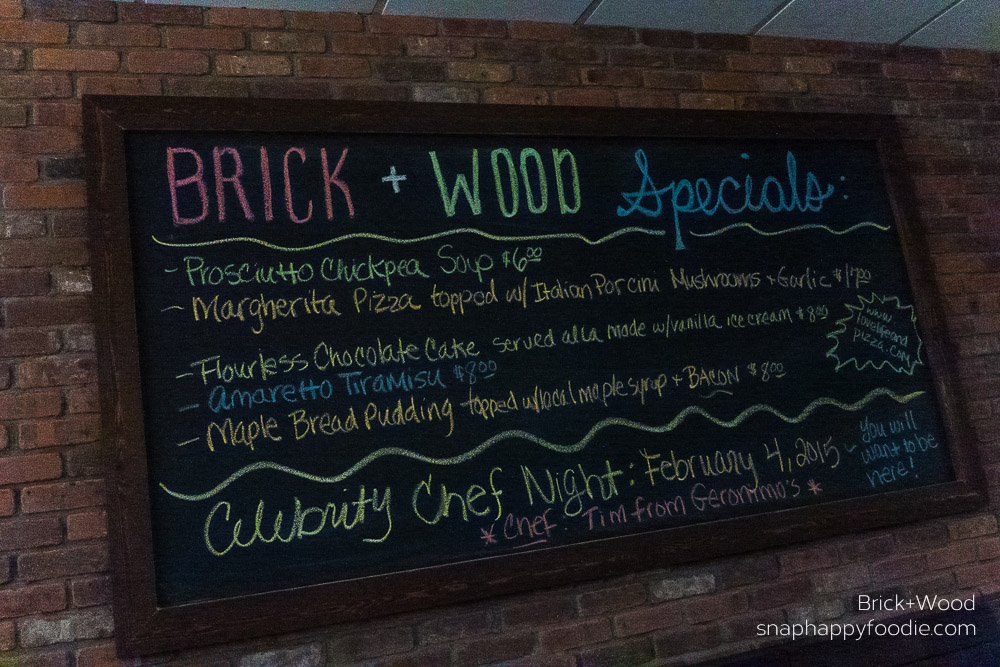 BRICK + WOOD Specials:
- Prosciutto Chickpea Soup $6.00
- Margherita Pizza topped w/ Italian Porcini Mushrooms + Garlic $17.00
- Flourless Chocolate Cake served alla mode w/vanilla ice cream $8.00
- Amaretto Tiramisu $8.00
- Maple Bread Pudding topped w/local maple syrup + BACON $8.00
www.
lovelifeand
pizza.com
Celebrity Chef Night: February 4, 2015 - You will want to be here!
* Chef: Tim from Geronimo's *
Brick+Wood
snaphappyfoodie.com